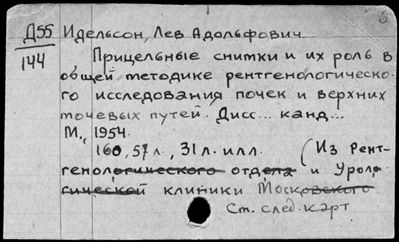 Д55 Идельсон, Лев Адольфович.
144 Прицельные снимки и их роль в
общей методике рентгенологическо-
го исследования почек и верхних
мочевых путей. Дисс... канд...
М., 1954.
160, 57 л., 31 л. илл. (Из Рент-
генологического отдела и Уроло-
гической клиники Московского
См. след. карт